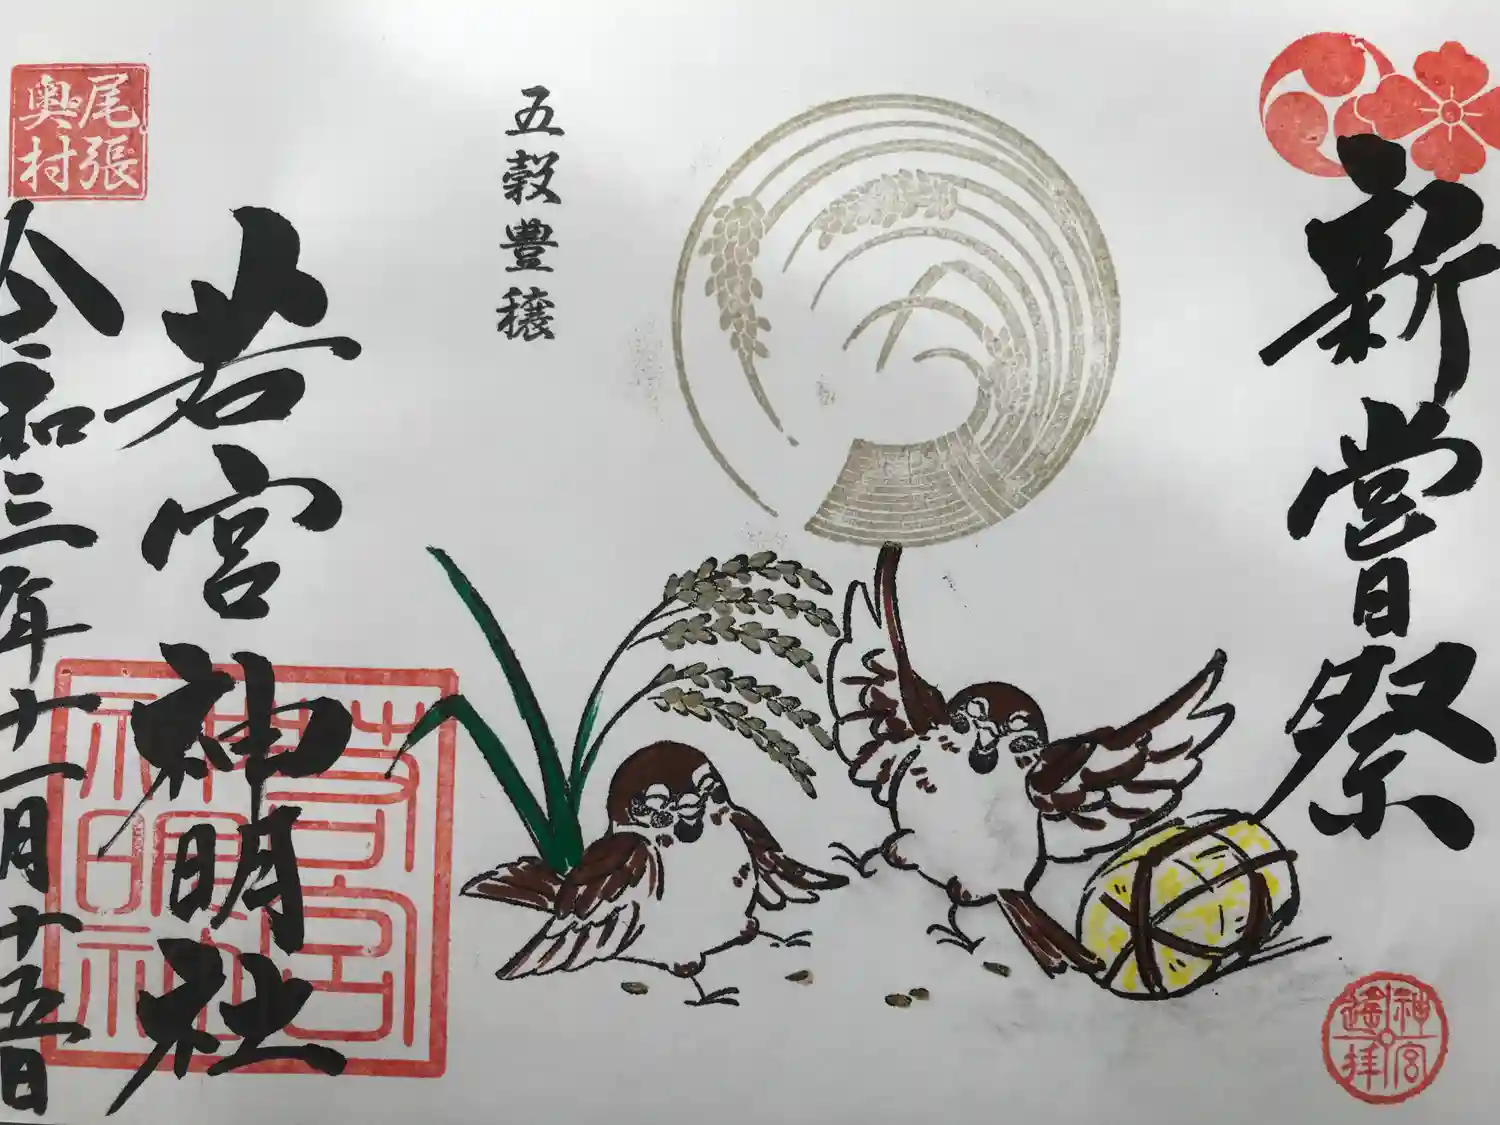 新嘗祭
神宮
遙拝
五穀豊穣
尾張
奥村
若宮神明社
若宮
神明社
令和三年十一月十五日